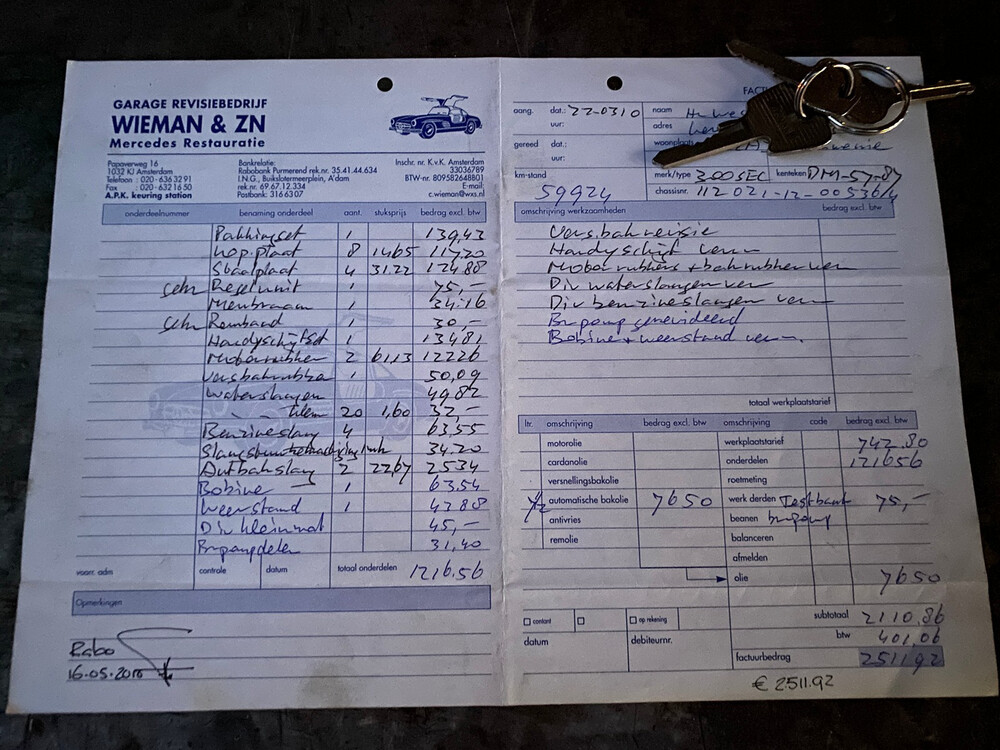 GARAGE REVISIEBEDRIJF
WIEMAN & ZN
Mercedes Restauratie
Papaverweg 16
1032 KJ Amsterdam
Telefoon : 020 - 636 32 91
Fax : 020 - 632 16 50
A.P.K. keuring station
Bankrelatie:
Rabobank Purmerend rek.nr. 35.41.44.634
I.N.G., Buikslotermeerplein, A'dam
rek.nr. 69.67.12.334
Postbank: 3166307
Inschr. nr. K.v.K. Amsterdam
33036789
BTW-nr. 809582648B01
E-mail:
c.wieman@wxs.nl
onderdeelnummer benaming onderdeel aant. stuksprijs bedrag excl. btw
Pakkingset 1 139,43
kop.plaat 8 14,65 117,20
Staalplaat 4 31.22 124,88
Regelunit 1 75,-
Menbraam 1 34,16
Remband 1 30,-
Hardyschijfset 1 134,81
Motorrubber 2 61,13 122,26
versbakrubber 1 50,09
Waterslangen 49,82
20 1,60 32,-
Benzineslang 4 63,55
34,20
2 25,34
Bobine 1 63,54
Weerstand 1 47,88
Div kleinmat 45,-
Brpompdelen 31,40
voorr. adm controle datum totaal onderdelen 1216.56
Opmerkingen
Rabo
16-05-2010
FACT
aang. dat.: 22-0310 naam
uur: adres
gereed dat.: woonplaats
uur:
km-stand merk/type 300SEC kenteken DM-57-87
59924 chassisnr. 112021-12-005364
omschrijving werkzaamheden bedrag excl. btw
Versbakrevisie
Hardyschijf vern
Motorrubbers + bakrubber ver
Div waterslangen ver
Div benzineslangen vern
Brpomp gereviseerd
Bobine + weerstand vern.
totaal werkplaatstarief
ltr. omschrijving bedrag excl. btw omschrijving code bedrag excl. btw
motorolie werkplaatstarief 742.80
cardanolie onderdelen 1216.56
versnellingsbakolie roetmeting
automatische bakolie 76.50 werk derden Testbank 75,-
antivries beanen brpomp
remolie balanceren
afmelden
olie 76.50
subtotaal 2110.86
contant op rekening btw 401.06
datum debiteurnr. factuurbedrag 2511.92
€ 2511.92